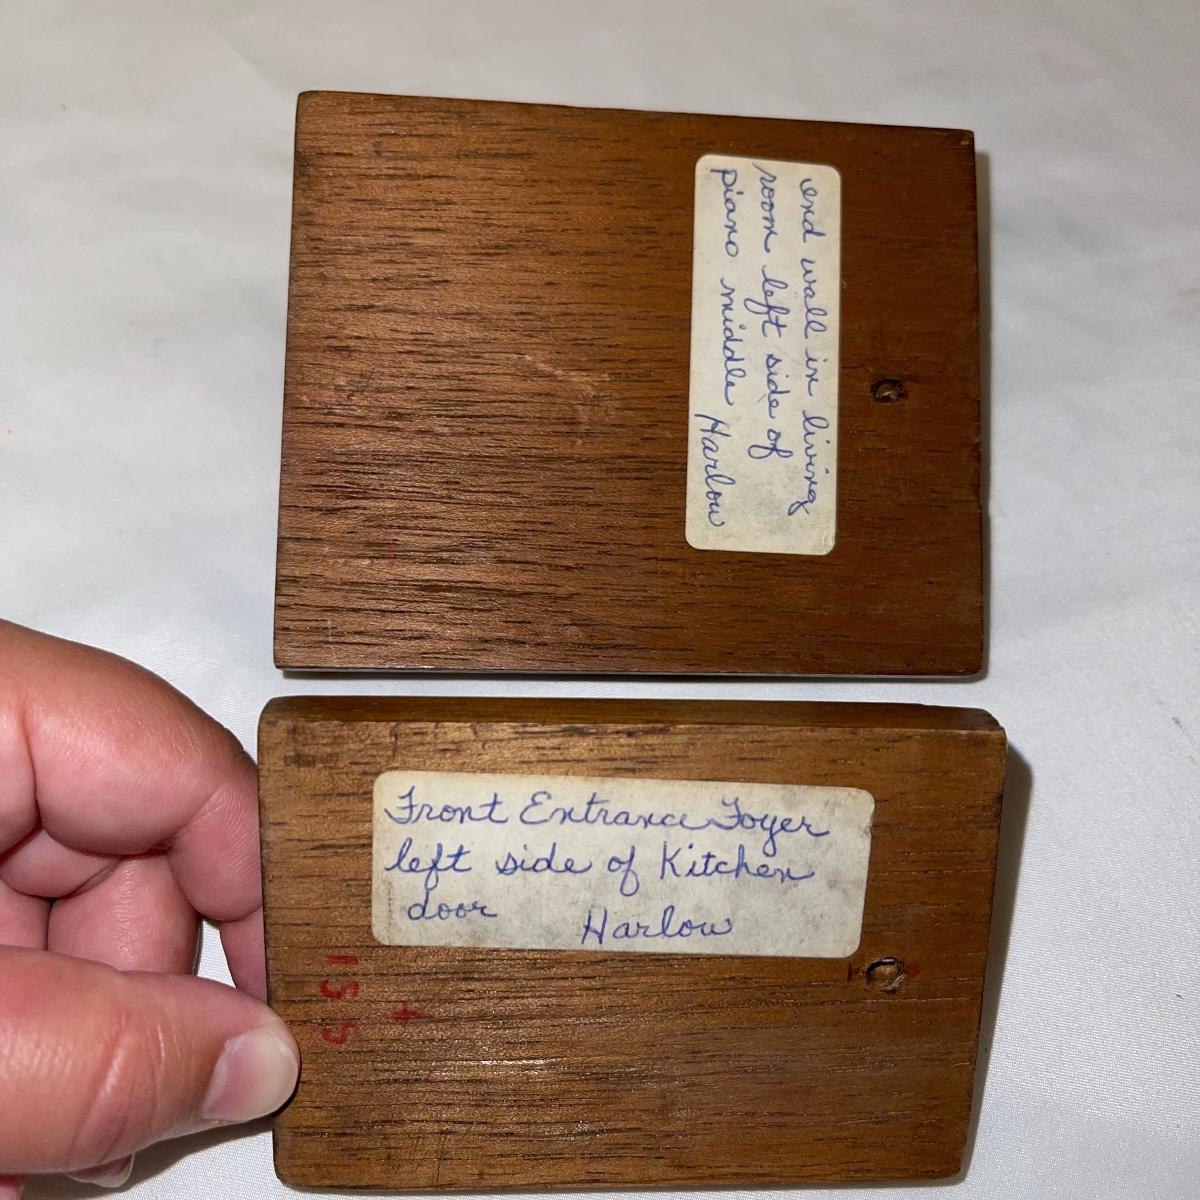 end wall in living
room left side of
piano middle Harlow
Front Entrance Foyer
left side of Kitchen
door Harlow